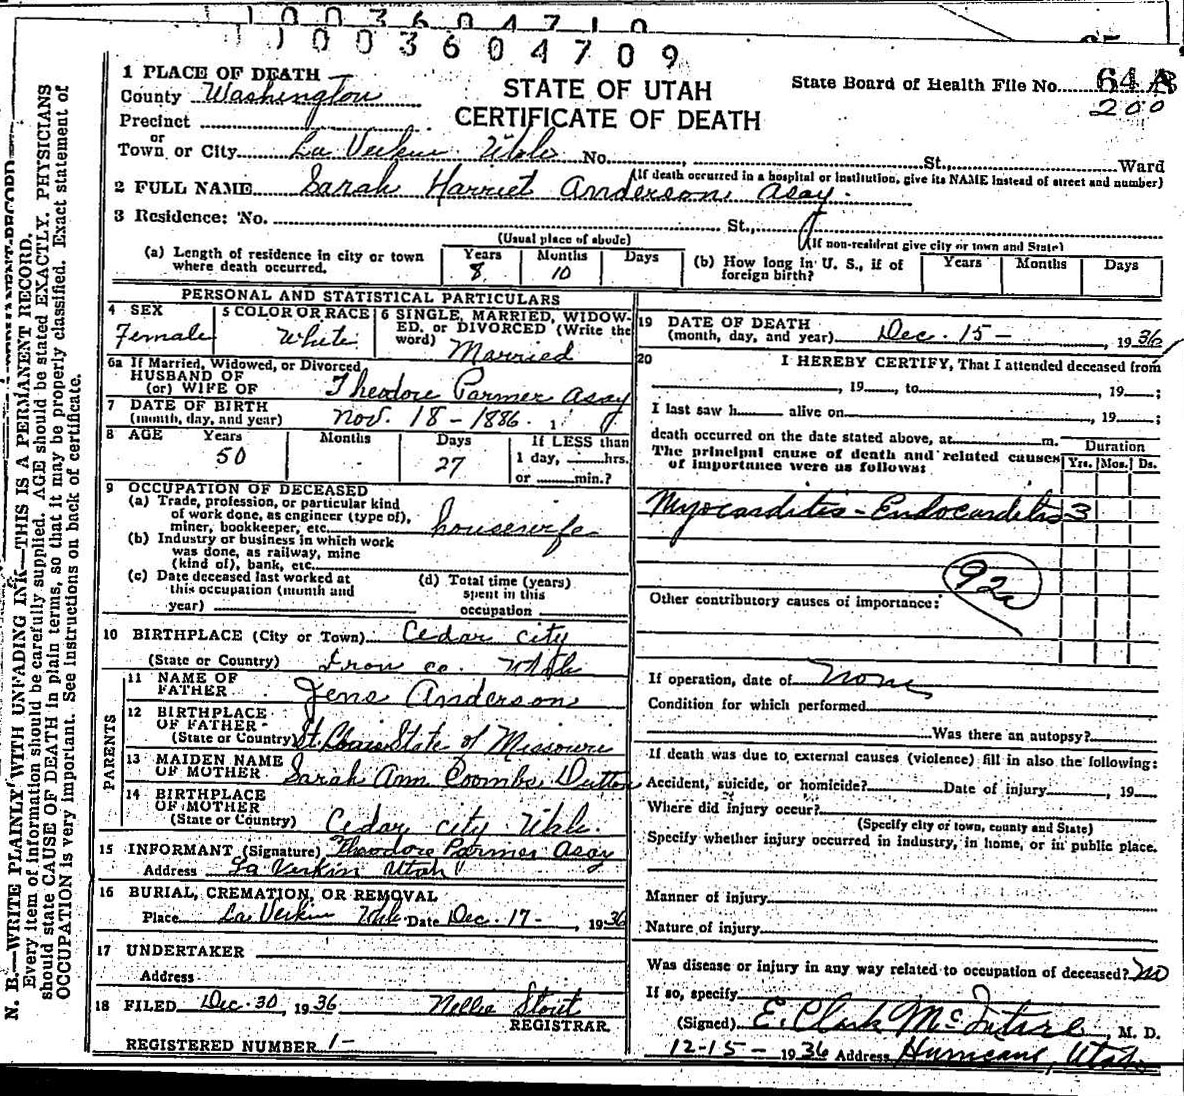 1003604710
1003604709
N. B.—WRITE PLAINLY WITH UNFADING INK—THIS IS A PERMANENT RECORD.
Every item of information should be carefully supplied. AGE should be stated EXACTLY. PHYSICIANS
should state CAUSE OF DEATH in plain terms, so that it may be properly classified. Exact statement of
OCCUPATION is very important. See instructions on back of certificate.
STATE OF UTAH
CERTIFICATE OF DEATH
State Board of Health File No. 64 A
200
1 PLACE OF DEATH
County Washington
Precinct
or
Town or City La Verkin Utah No. , St., Ward
(If death occurred in a hospital or institution, give its NAME instead of street and number)
2 FULL NAME Sarah Harriet Anderson Asay.
3 Residence: No. St.,
(Usual place of abode) (If non-resident give city or town and State)
(a) Length of residence in city or town where death occurred. Years 8 Months 10 Days
(b) How long in U. S., if of foreign birth? Years Months Days
PERSONAL AND STATISTICAL PARTICULARS
4 SEX Female
5 COLOR OR RACE White
6 SINGLE, MARRIED, WIDOWED, or DIVORCED (Write the word) Married
6a If Married, Widowed, or Divorced
HUSBAND OF
(or) WIFE OF Theodore Parmer Asay
7 DATE OF BIRTH
(month, day, and year) Nov. 18 - 1886. 1
8 AGE Years 50 Months Days 27 If LESS than
1 day, hrs.
or min.?
9 OCCUPATION OF DECEASED
(a) Trade, profession, or particular kind
of work done, as engineer (type of),
miner, bookkeeper, etc. housewife
(b) Industry or business in which work
was done, as railway, mine
(kind of), bank, etc.
(c) Date deceased last worked at
this occupation (month and
year)
(d) Total time (years)
spent in this
occupation
10 BIRTHPLACE (City or Town) Cedar City
(State or Country) Iron Co. Utah
PARENTS
11 NAME OF
FATHER Jens Anderson
12 BIRTHPLACE
OF FATHER
(State or Country) St. State of Missouri
13 MAIDEN NAME
OF MOTHER Sarah Ann Coombs Dutton
14 BIRTHPLACE
OF MOTHER
(State or Country) Cedar City Utah.
15 INFORMANT (Signature) Theodore Parmer Asay
Address La Verkin Utah
16 BURIAL, CREMATION, OR REMOVAL
Place La Verkin Utah Date Dec. 17 - , 1936
17 UNDERTAKER
Address
18 FILED Dec. 30, 1936 Nellie Stout
REGISTRAR.
REGISTERED NUMBER 1-
19 DATE OF DEATH
(month, day, and year) Dec. 15 - , 1936
20 I HEREBY CERTIFY, That I attended deceased from
, 19 , to , 19 ;
I last saw h alive on , 19 ;
death occurred on the date stated above, at m.
Duration
The principal cause of death and related causes
of importance were as follows: Yrs. Mos. Ds.
Myocarditis - Endocarditis 3
92a
Other contributory causes of importance:
If operation, date of None
Condition for which performed
Was there an autopsy?
If death was due to external causes (violence) fill in also the following:
Accident, suicide, or homicide? Date of injury , 19
Where did injury occur?
(Specify city or town, county and State)
Specify whether injury occurred in industry, in home, or in public place.
Manner of injury
Nature of injury
Was disease or injury in any way related to occupation of deceased? no
If so, specify
(Signed) E. Clark McIntire, M. D.
12-15- 1936 Address Hurricane, Utah